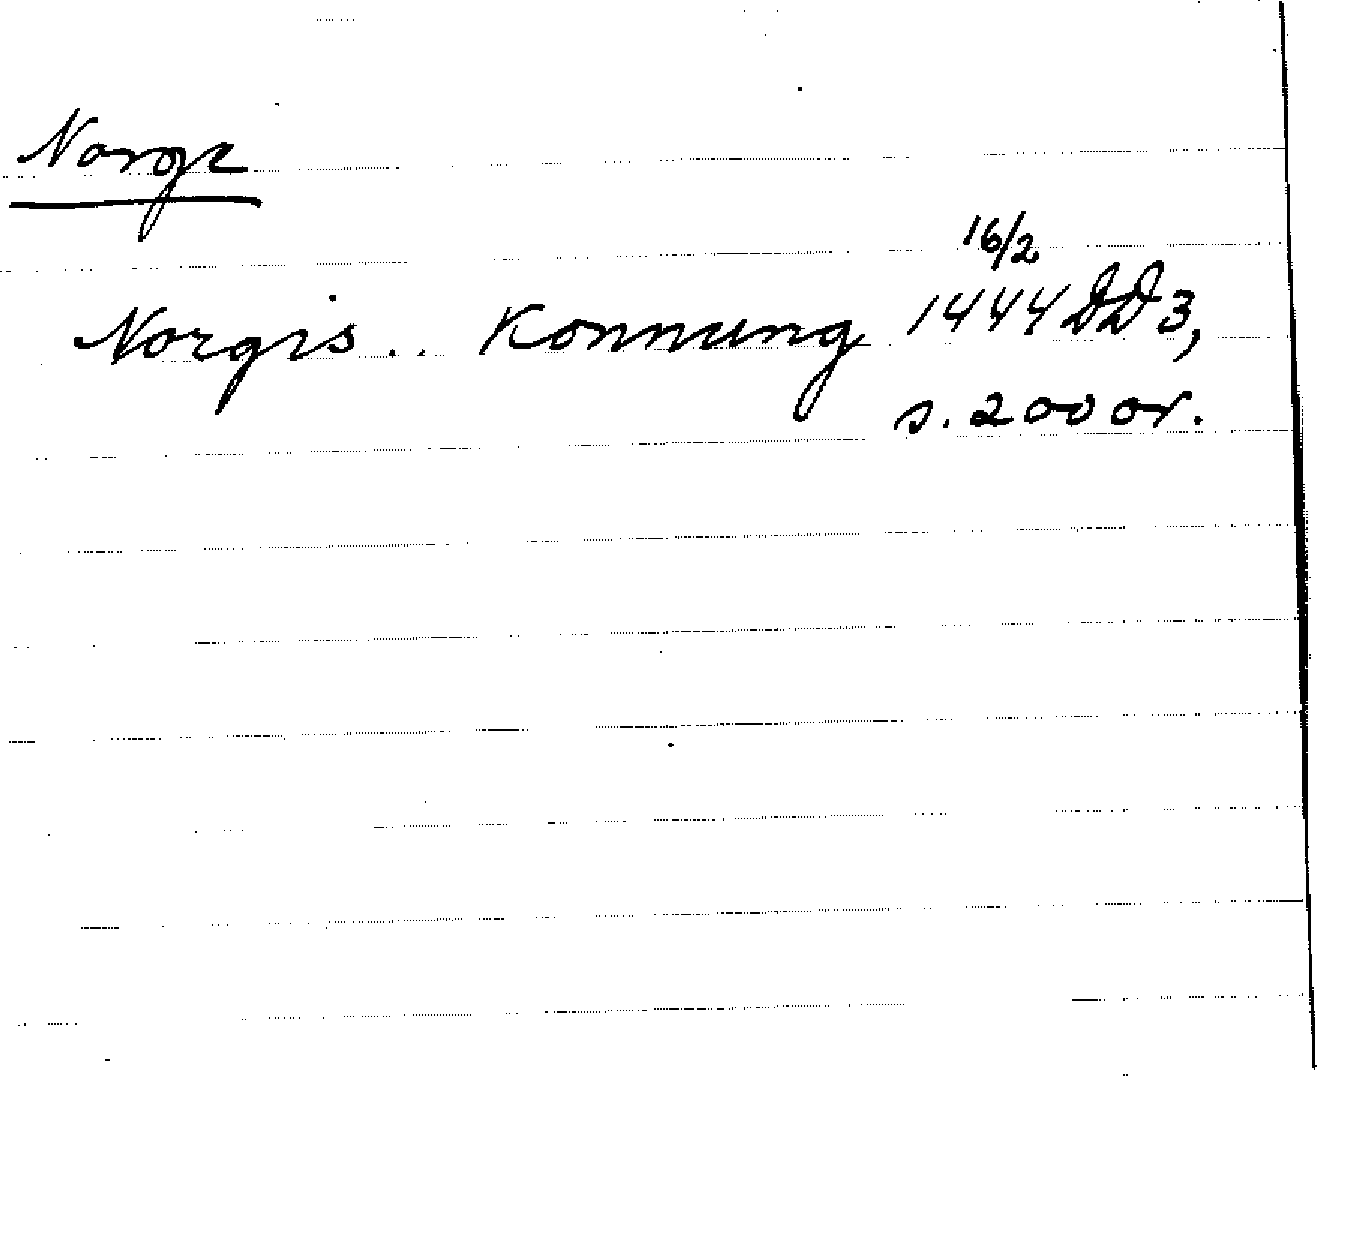 Norge
16/2
Norgis.. Konnung 1444 DD 3,
s. 200 or.